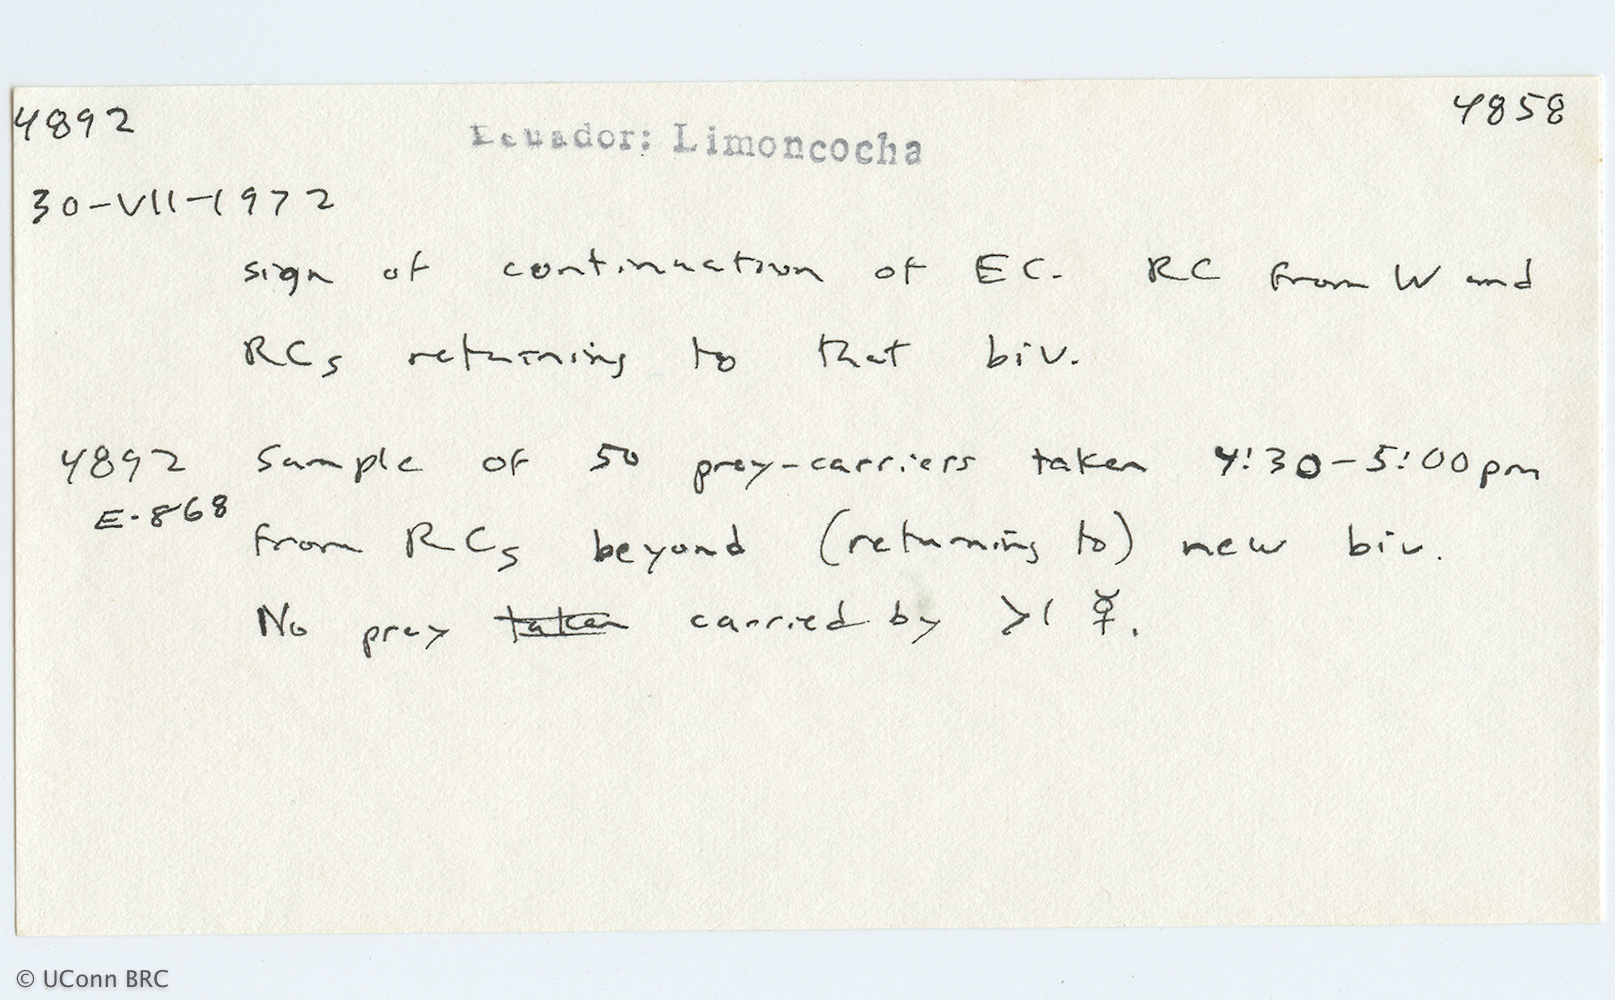 4892
4858
Ecuador: Limoncocha
30-VII-1972
sign of continuation of EC. RC from W and
RCs returning to that biv.
4892 Sample of 50 prey-carriers taken 4:30-5:00pm
E-868
from RCs beyond (returning to) new biv.
No prey taken carried by >1 ☿.
© UConn BRC